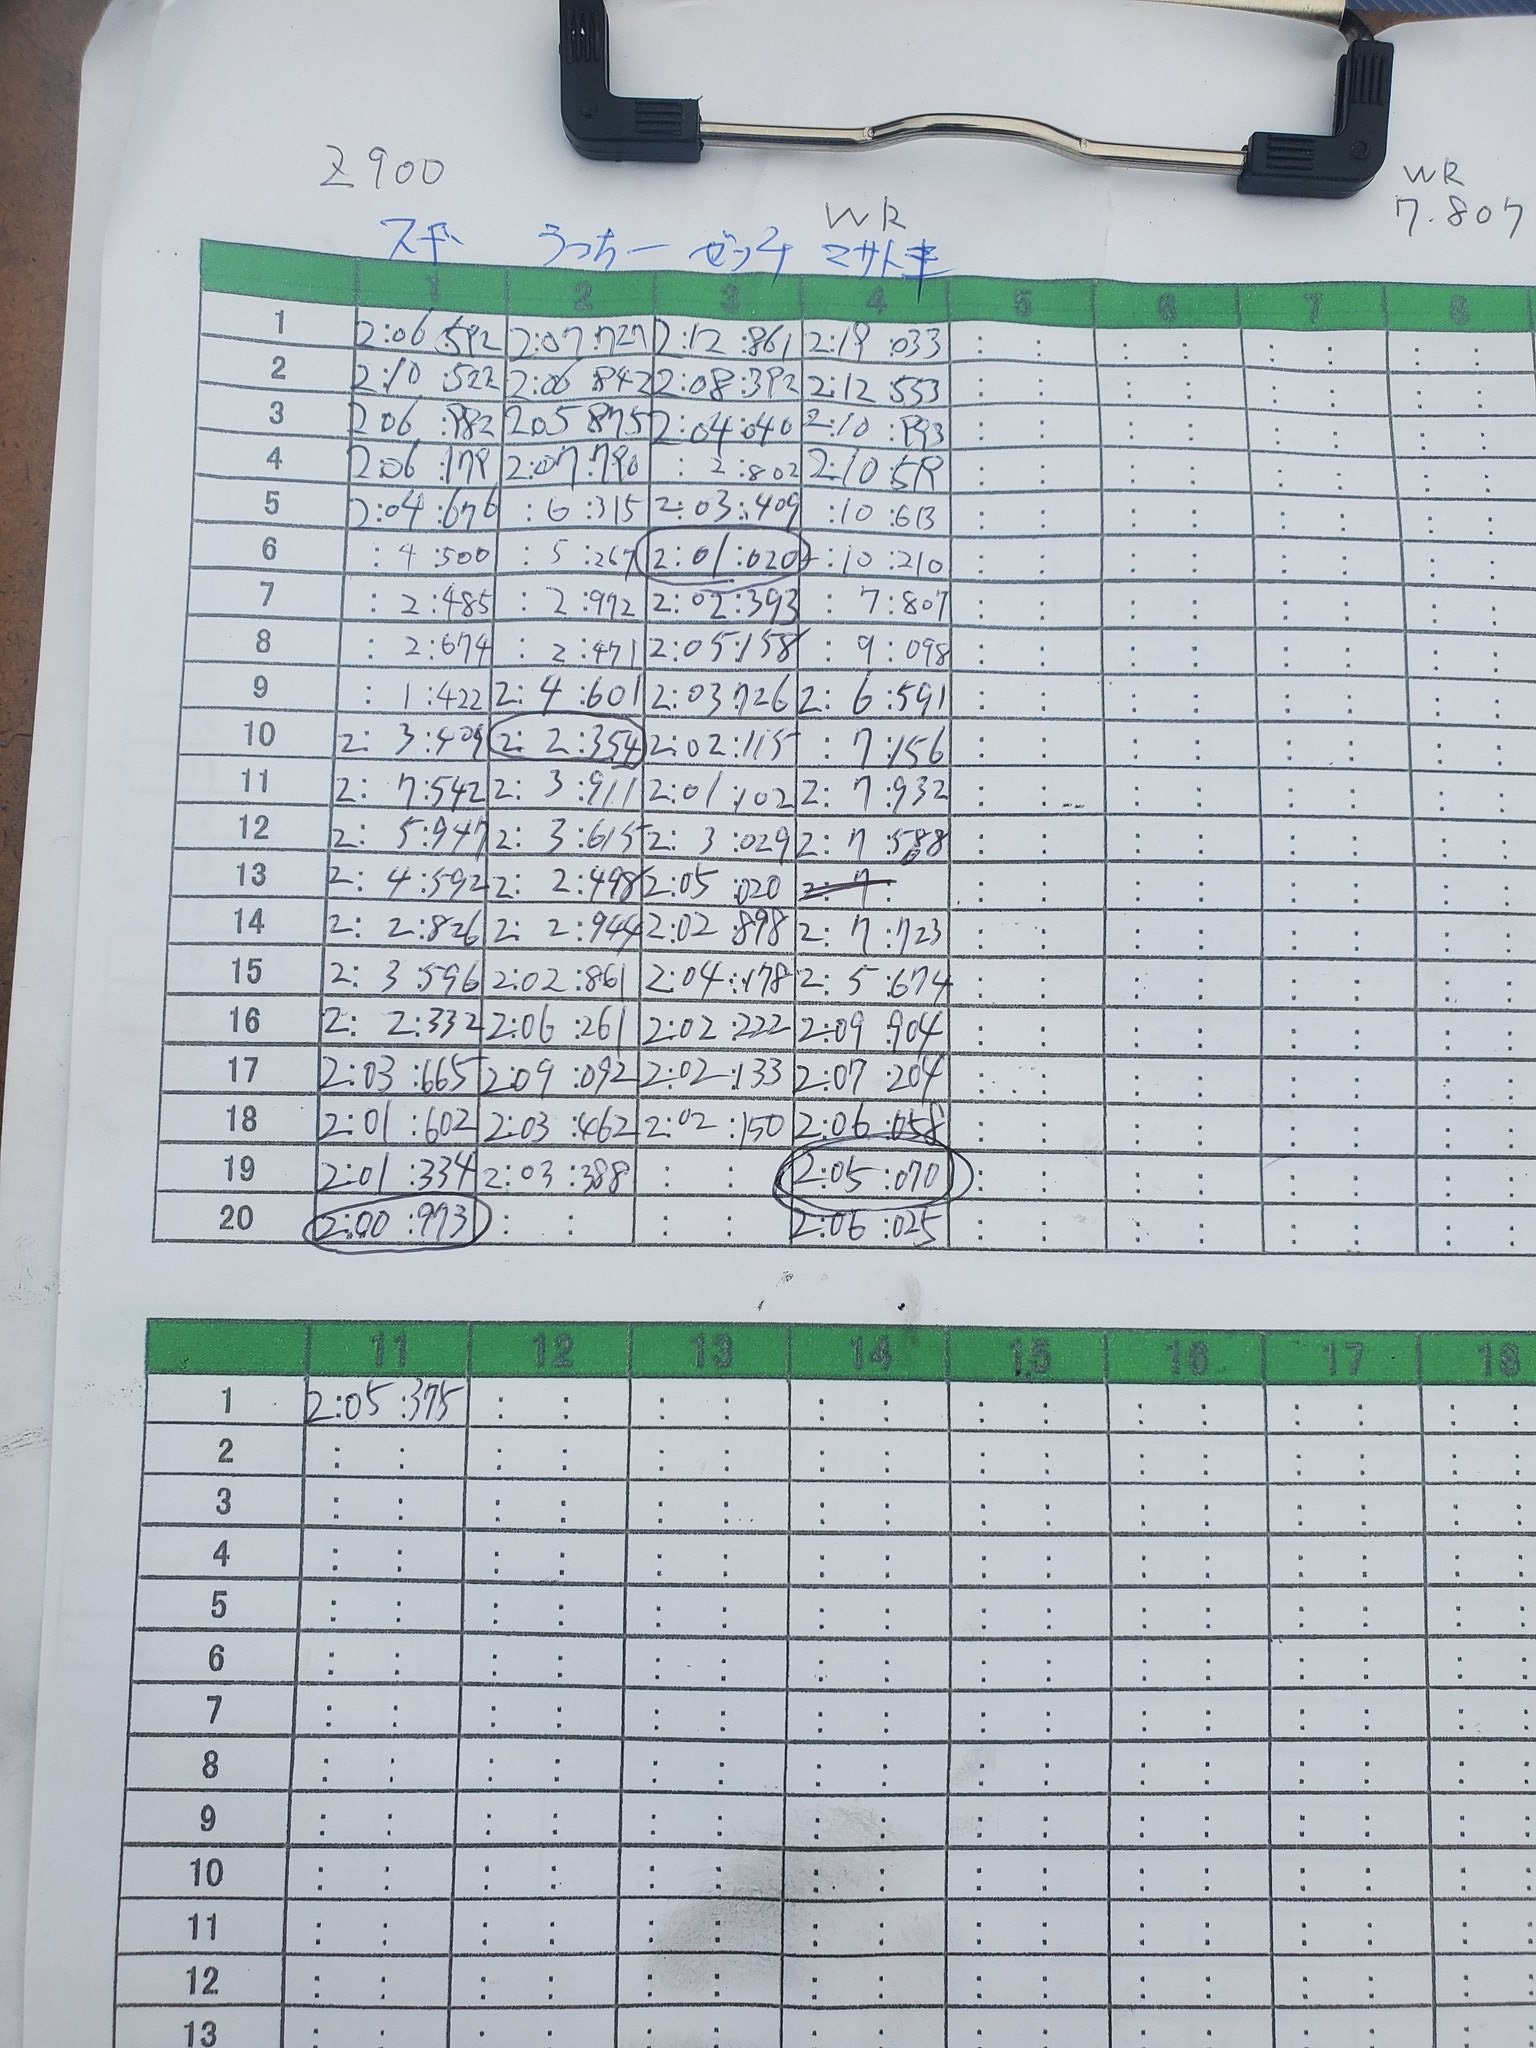 Z900
WR
WR
7.807
スギ うっちー ゼッケ マサトモ
1 2 3 4 5 6 7 8
1 2:06 592 2:07:727 2:12:861 2:19:033
2 2:10:522 2:06 842 2:08:392 2:12 553
3 206:982 205 875 2:04:040 2:10:993
4 2:06:179 2:07:790 :2:802 2:10 59
5 2:04:676 :6:315 2:03:409 :10:613
6 :4:500 :5:267 2:01:020 :10:210
7 :2:485 :2:972 2:02:393 :7:807
8 :2:674 :2:471 2:05:158 :9:098
9 :1:422 2:4:601 2:03:726 2:6:591
10 2:3:409 2:2:354 2:02:115 :7:156
11 2:7:542 2:3:911 2:01:102 2:7:932
12 2:5:947 2:3:615 2:3:029 2:7:588
13 2:4:592 2:2:498 2:05:020 2:7:
14 2:2:826 2:2:944 2:02:898 2:7:723
15 2:3:596 2:02:861 2:04:178 2:5:674
16 2:2:332 2:06:261 2:02:222 2:09:904
17 2:03:665 2:09:092 2:02:133 2:07:204
18 2:01:602 2:03:462 2:02:150 2:06:058
19 2:01:334 2:03:388 : : 2:05:070
20 2:00:973 : : : : 2:06:025
11 12 13 14 15 16 17 18
1 2:05:375
2
3
4
5
6
7
8
9
10
11
12
13